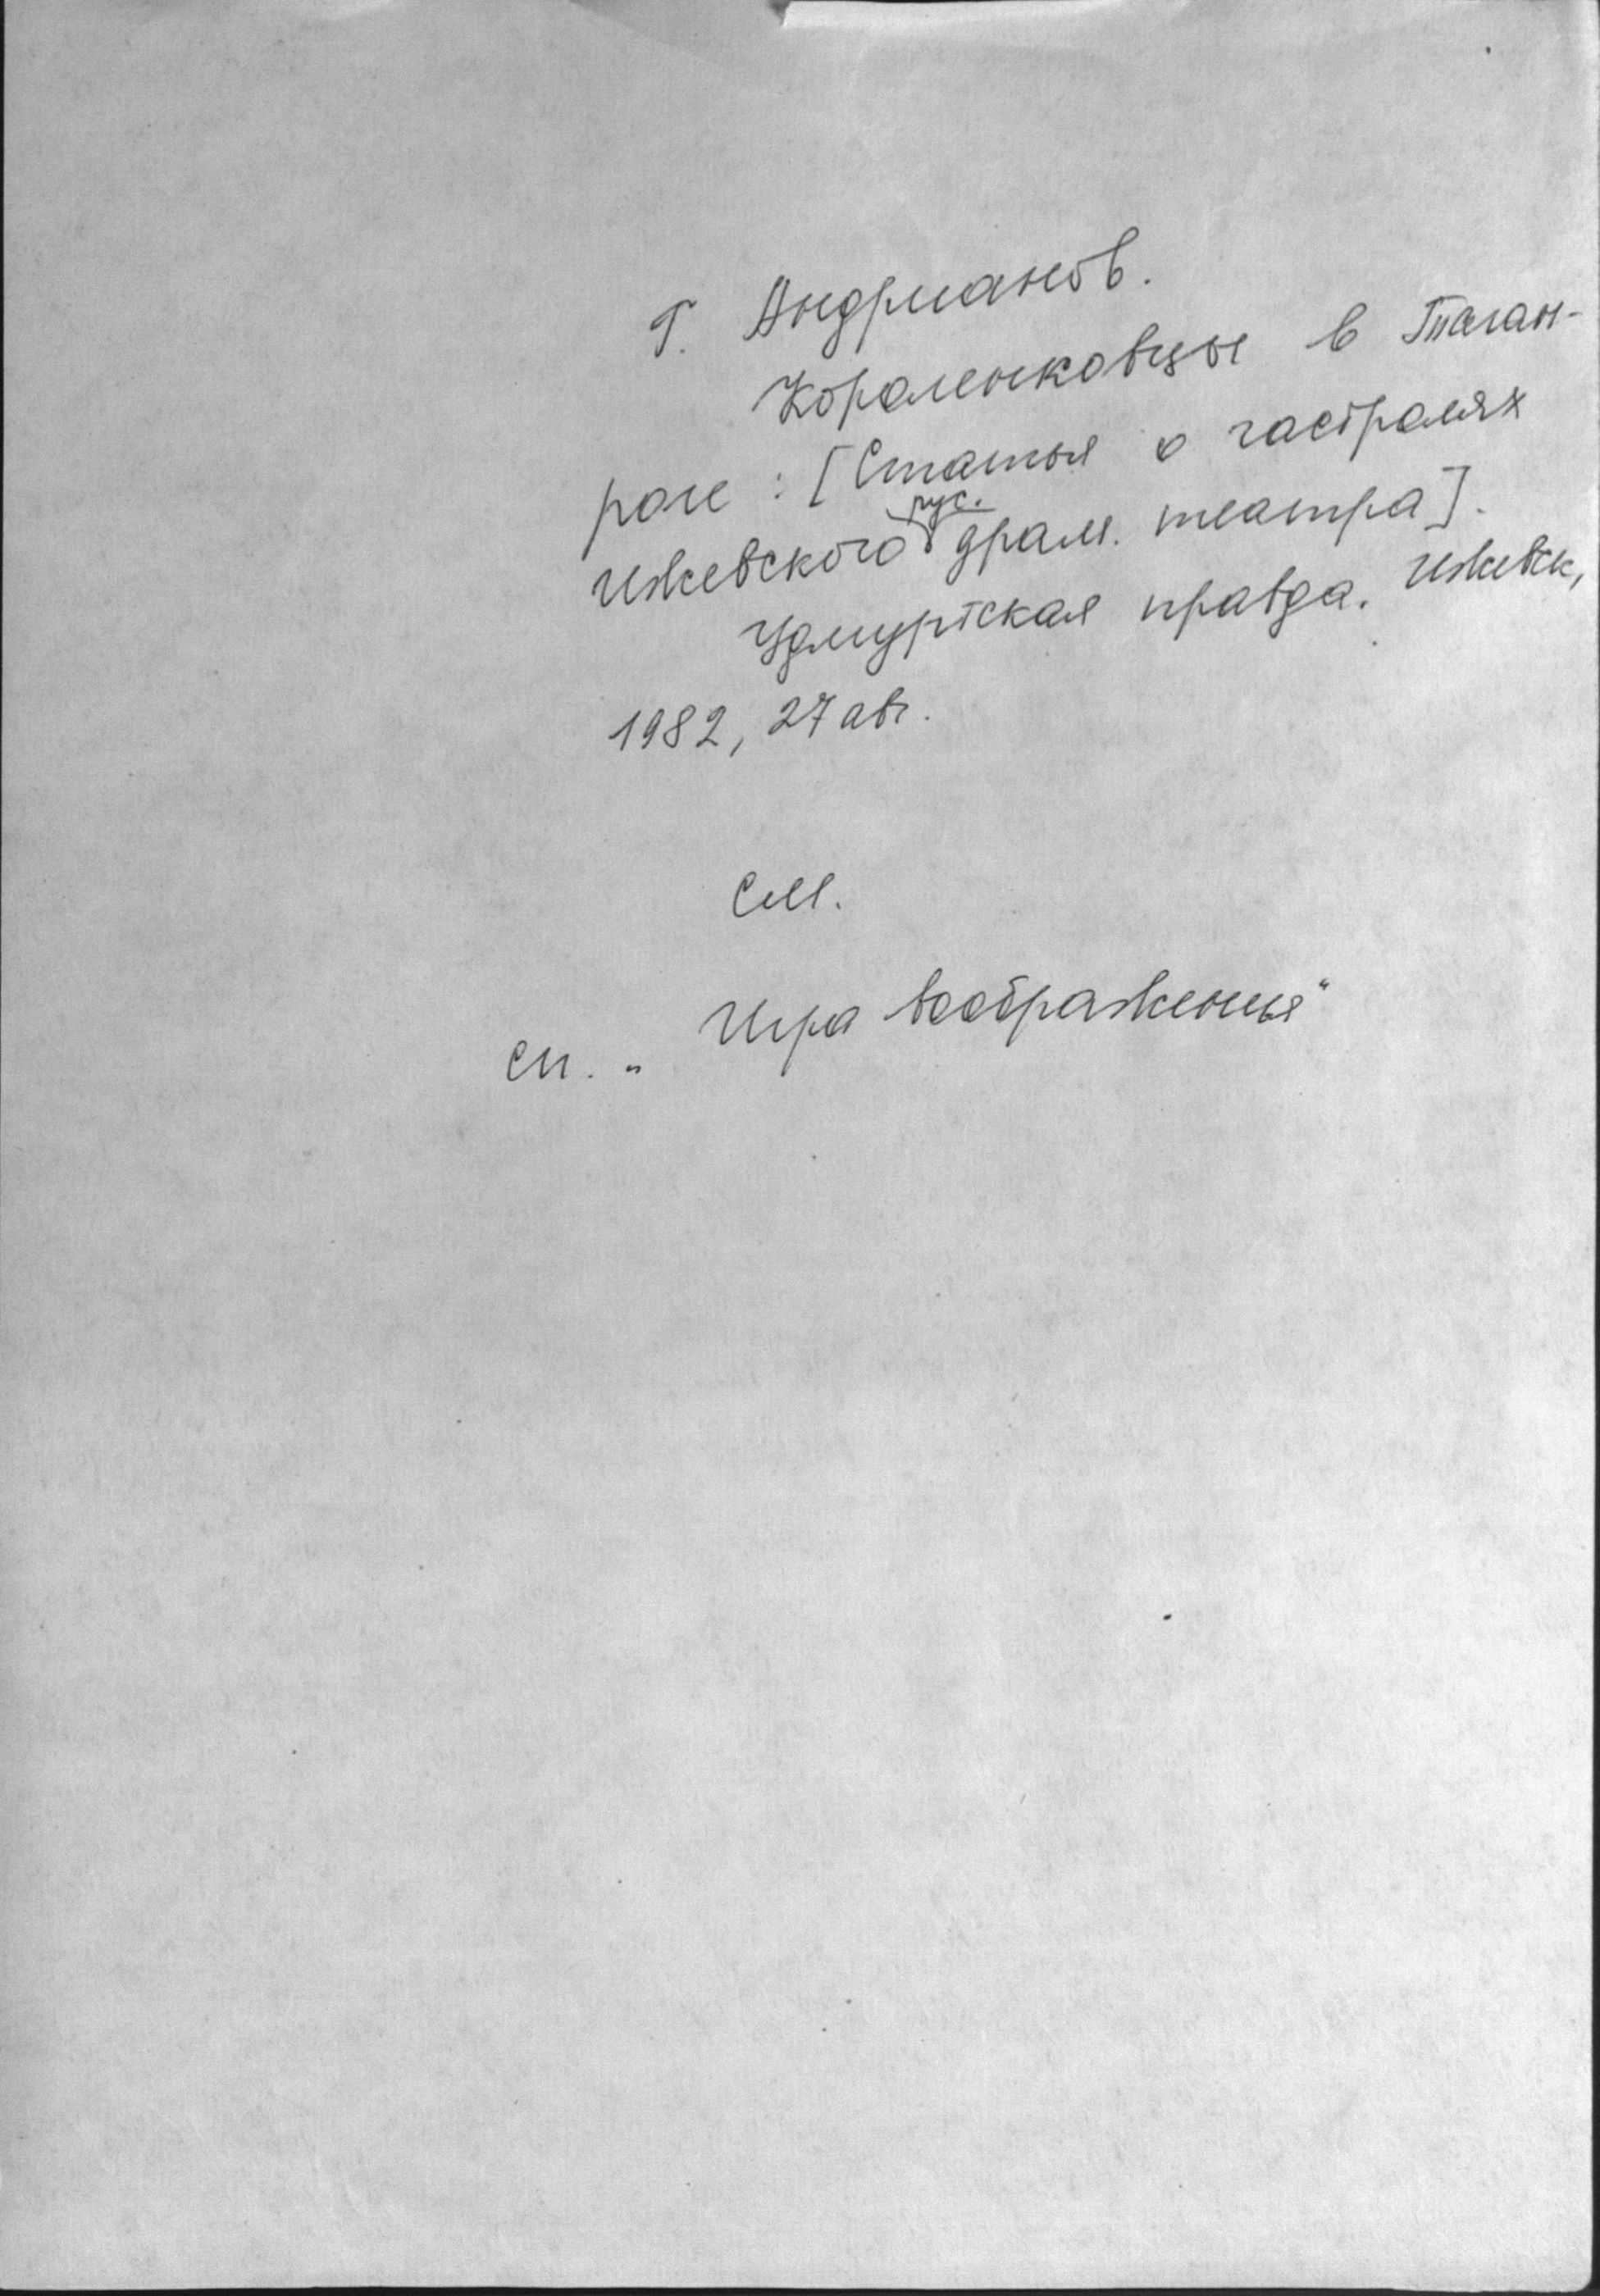 Г. Андрианов.
Короленковцы в Таган-
роге : [Статья о гастролях
рус.
Ижевского драм. театра].
Удмуртская правда. Ижевск,
1982, 27 авг.
См.
сп. „Игра воображенья"